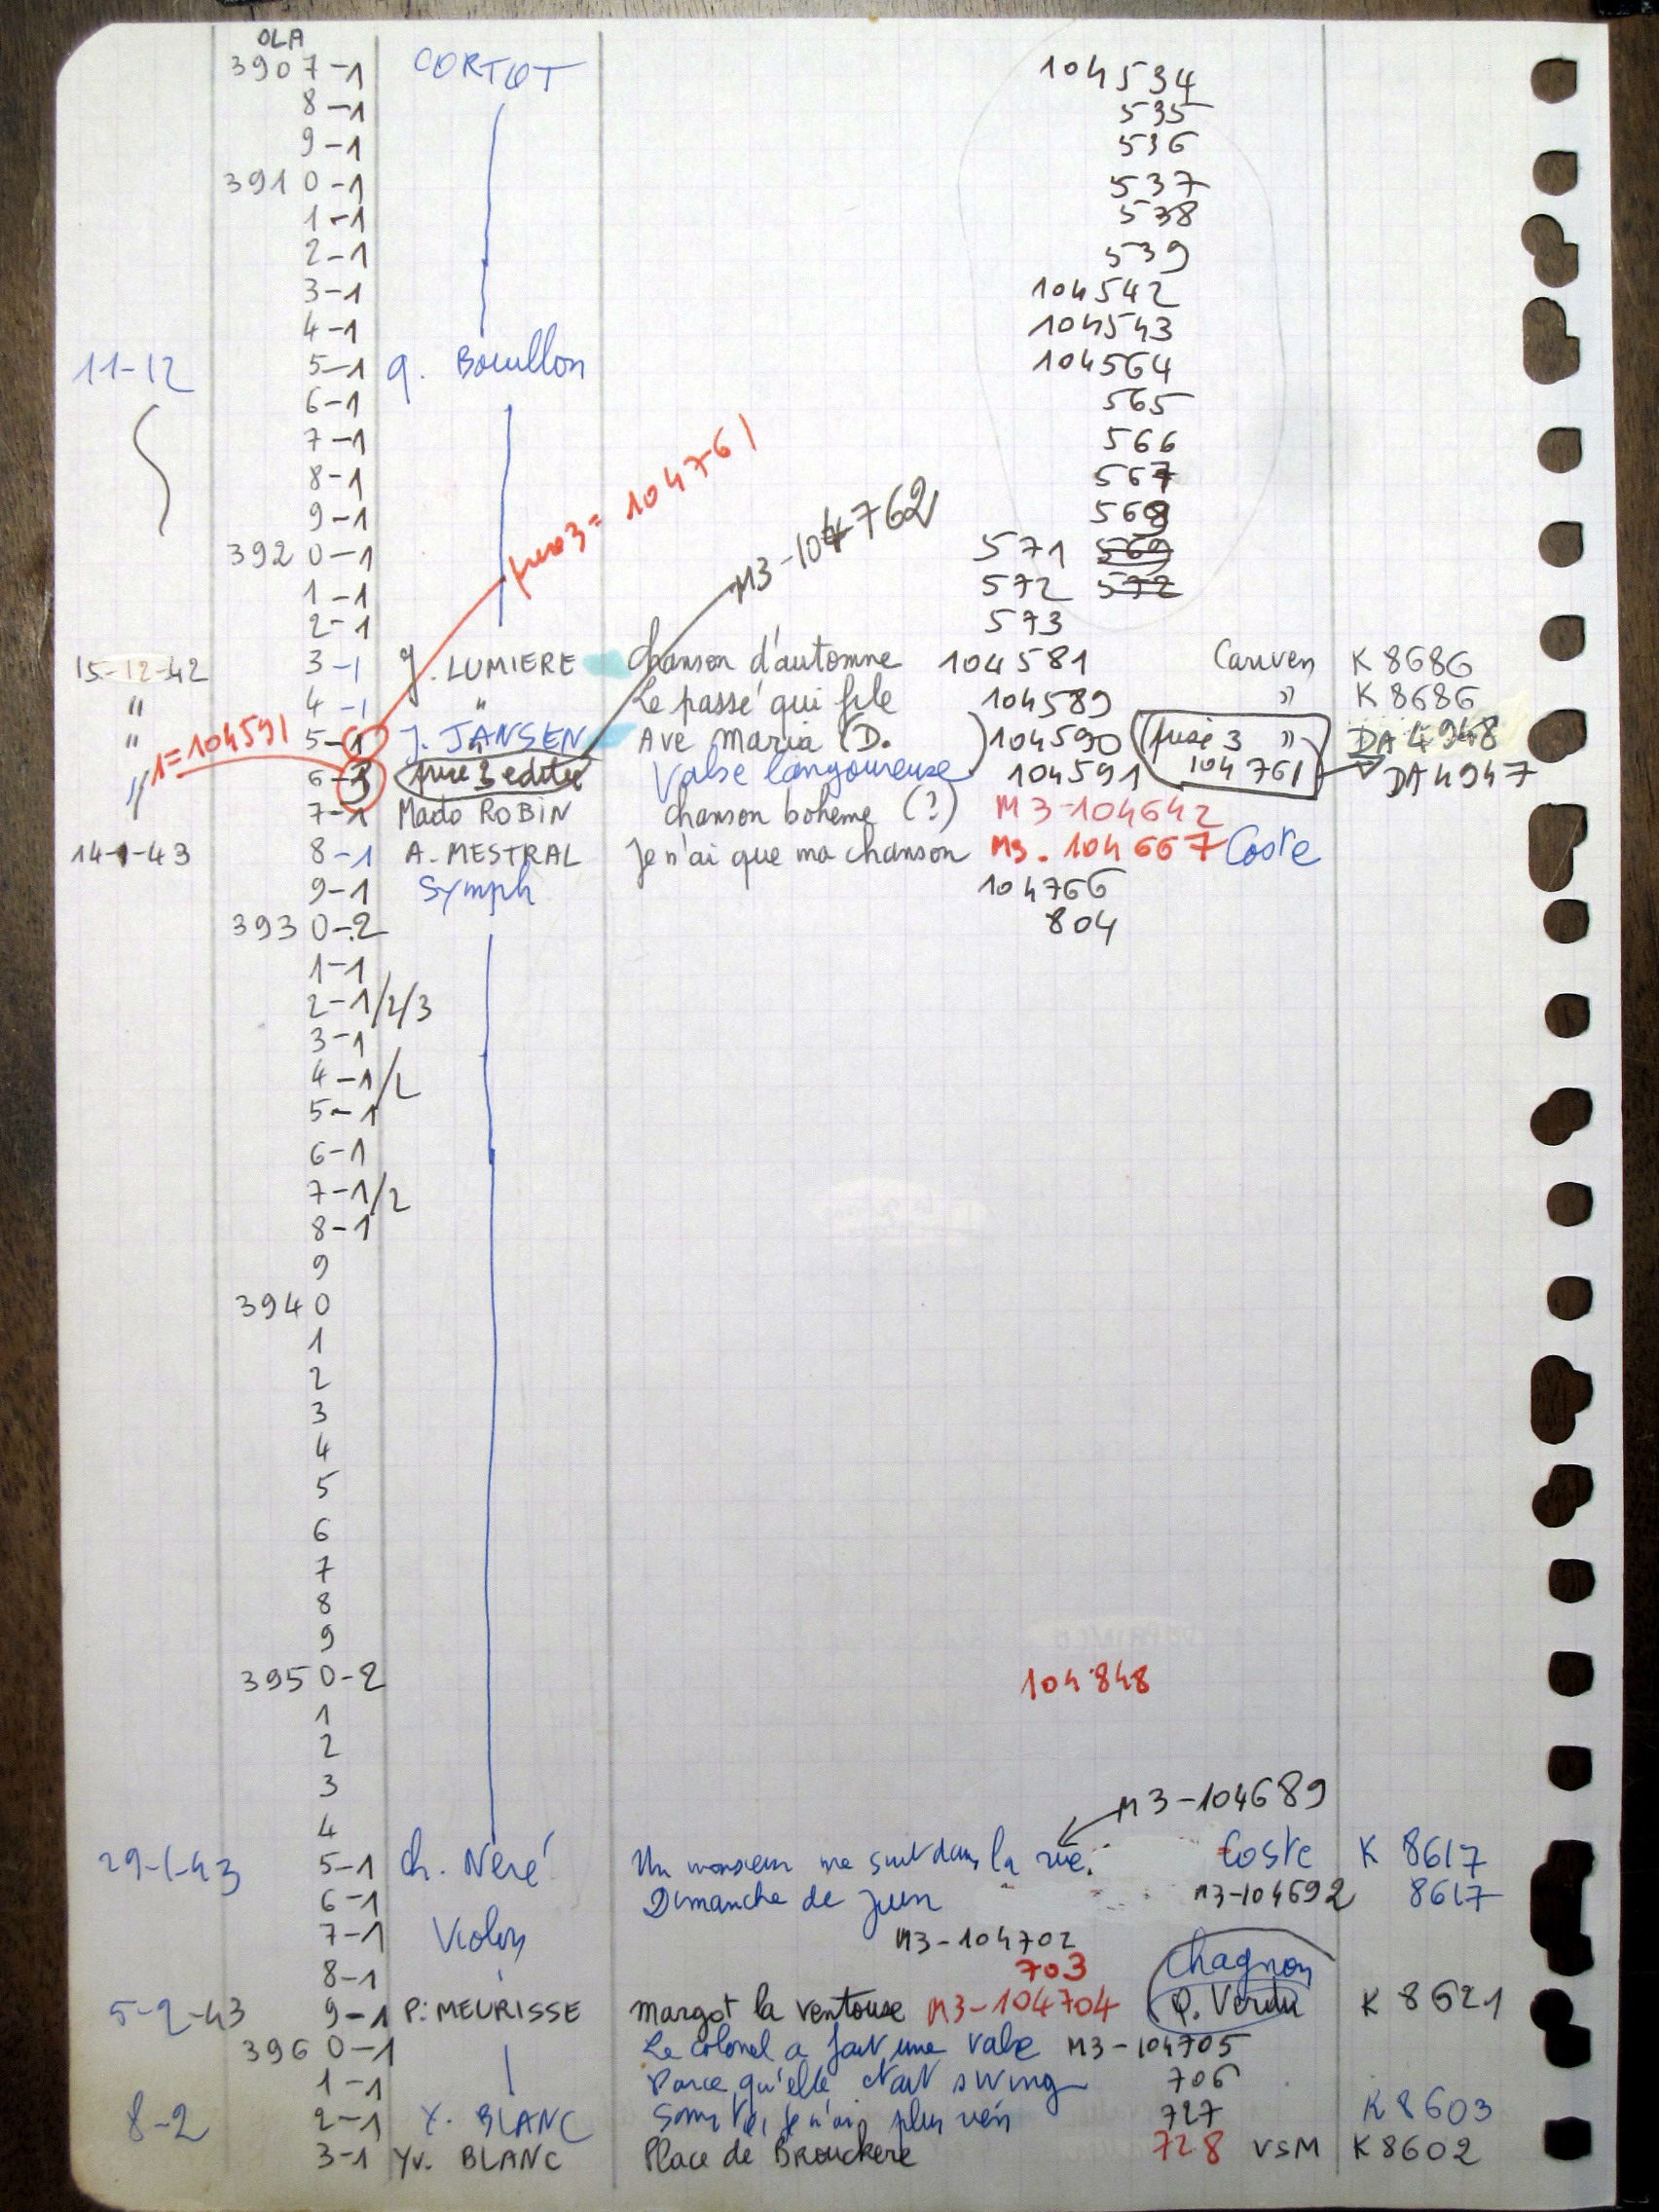 OLA
3907-1 CORTOT 104534
8-1 535
9-1 536
3910-1 537
1-1 538
2-1 539
3-1 104542
4-1 104543
11-12 5-1 J. Bouillon 104564
6-1 565
7-1 566
8-1 567
9-1 568
prise 3 = 104761
M3-104762
3920-1 571 569
1-1 572 572
2-1 573
15-12-42 3-1 J. LUMIERE Chanson d'automne 104581 Cariven K 8686
" 4-1 " Le passé qui file 104589 " K 8686
" 5-1 J. JANSEN Ave Maria (D. ) 104590 (prise 3 " DA 4948
1=104591
" 6-1 prise 3 editée Valse langoureuse 104591 104761 DA 4947
7-1 Mado ROBIN chanson boheme (?) M3-104642
14-1-43 8-1 A. MESTRAL Je n'ai que ma chanson M3-104667 Coste
9-1 Symph 104766
3930-2 804
1-1
2-1/2/3
3-1
4-1/2
5-1
6-1
7-1/2
8-1
9
3940
1
2
3
4
5
6
7
8
9
3950-2 104848
1
2
3
M3-104689
4
29-1-43 5-1 Ch. Neré Un monsieur me suit dans la rue. Coste K 8617
6-1 Dimanche de Juin M3-104692 8617
7-1 Violon M3-104702
8-1 703 Chagnon
5-2-43 9-1 P. MEURISSE Margot la ventouse M3-104704 P. Verdu K 8621
3960-1 Le colonel a fait une valse M3-104705
1-1 Parce qu'elle était swing 706
8-2 2-1 Y. BLANC Sans toi, je n'ai plus rien 727 K 8603
3-1 Yv. BLANC Place de Brouckere 728 VSM K 8602